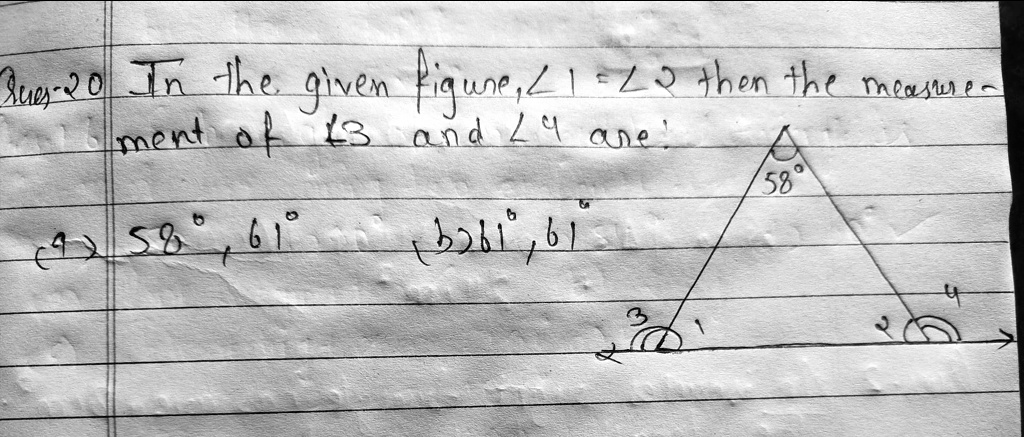 Ques-20 In the given figure, ∠1 = ∠2 then the measure-
ment of ∠3 and ∠4 are:
58°
(a) 58°, 61° (b) 61°, 61°
3 1 2 4